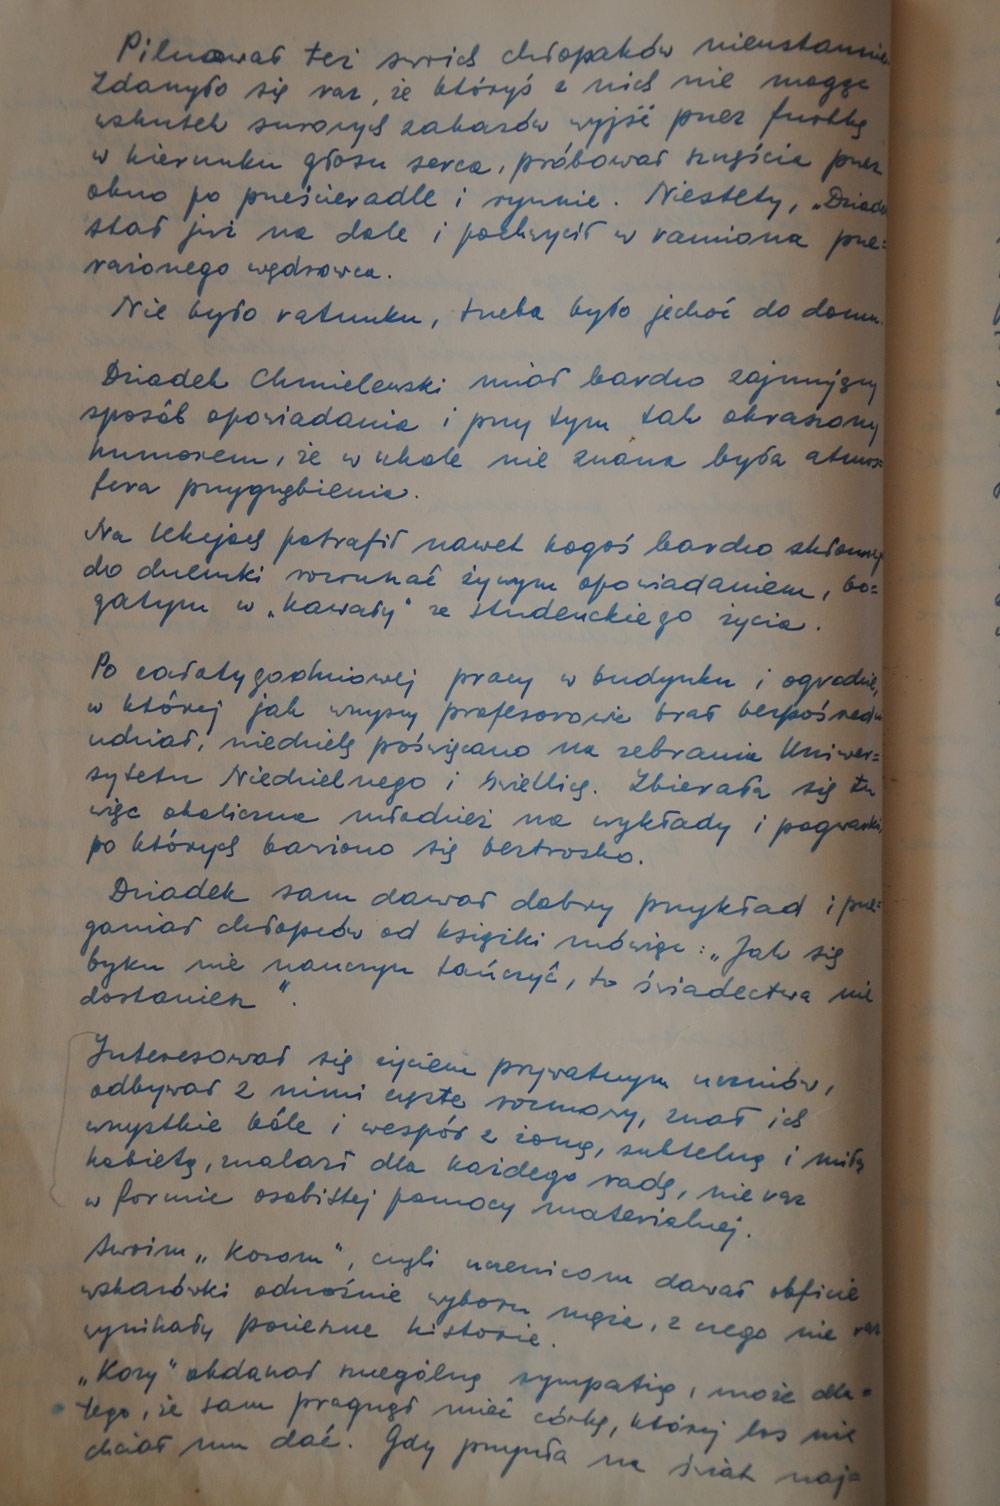 Pilnował też swoich chłopaków nieustannie.
Zdarzyło się raz, że któryś z nich nie mogąc
wskutek surowych zakazów wyjść przez furtkę
w kierunku głosu serca, próbował szczęścia przez
okno po prześcieradle i rynnie. Niestety, „Dziadek
stał już na dole i pochwycił w ramiona prze=
rażonego wędrowca.
Nie było ratunku, trzeba było jechać do domu.
Dziadek Chmielewski miał bardzo zajmujący
sposób opowiadania i przy tym tak okraszony
humorem, że w szkole nie znana była atmos=
fera przygnębienia.
Na lekcjach potrafił nawet kogoś bardzo skłonnego
do drzemki rozruszać żywym opowiadaniem, bo=
gatym w „kawały" ze studenckiego życia.
Po całotygodniowej pracy w budynku i ogrodzie,
w której jak wszyscy profesorowie brał bezpośredni
udział, niedzielę poświęcano na zebrania Uniwer=
sytetu Niedzielnego i świetlicę. Zbierała się tu
więc okoliczna młodzież na wykłady i pogwarki,
po których bawiono się beztrosko.
Dziadek sam dawał dobry przykład i prze=
ganiał chłopców od książki mówiąc: „Jak się
byku nie nauczysz tańczyć, to świadectwa nie
dostaniesz".
Interesował się życiem prywatnym uczniów,
odbywał z nimi częste rozmowy, znał ich
wszystkie bóle i wespół z żoną, subtelną i miłą
kobietą, znalazł dla każdego radę, nie raz
w formie osobistej pomocy materialnej.
Swoim „Kozom", czyli uczenicom dawał obficie
wskazówki odnośnie wyboru męża, z czego nie raz
wynikały pocieszne historie.
„Kozy" obdarzał szczególną sympatią, może dla=
tego, że sam pragnął mieć córkę, której los nie
chciał mu dać. Gdy przyszła na świat moja